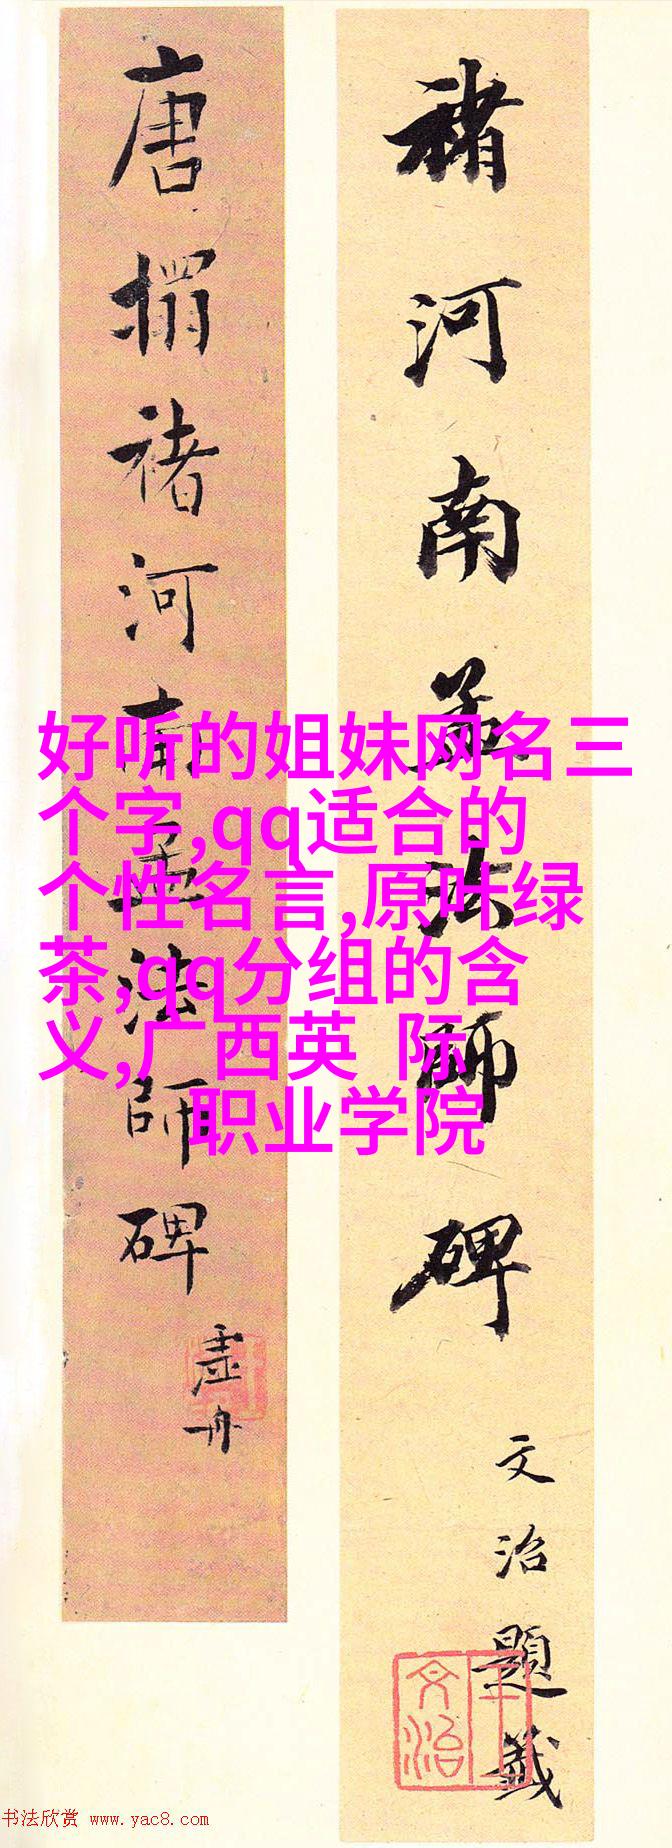 褚河南孟法師碑
文治題籤
唐搨褚河南孟法師碑
虚舟
好听的姐妹网名三
个字,qq适合的
个性名言,原叶绿
茶,qq分组的含
义,广西英 际
职业学院
文治
书法欣赏 www.yac8.com